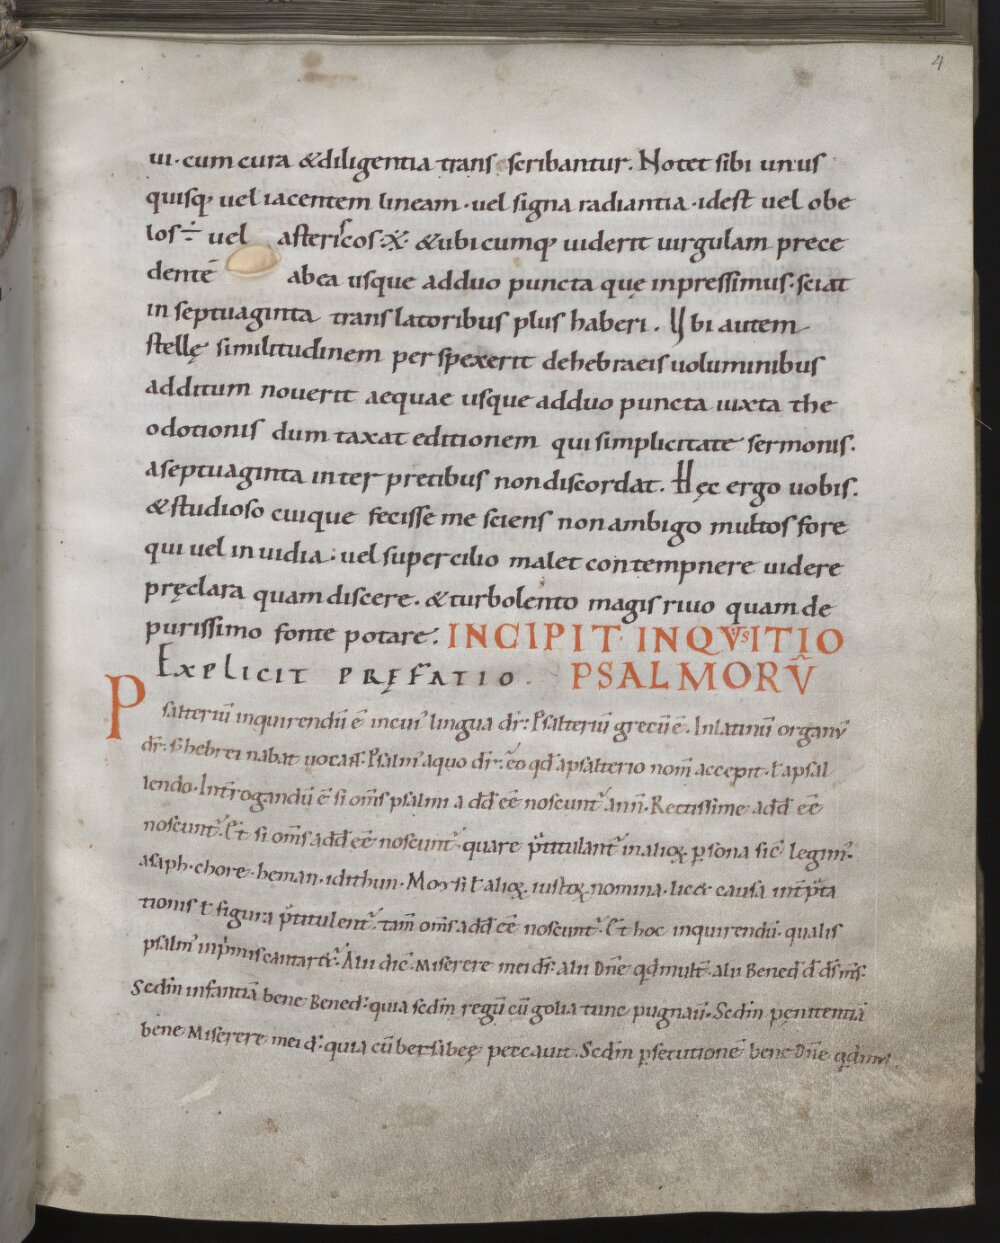 4
ui · cum cura &diligentia trans scribantur. Notet sibi unus
quisq; uel iacentem lineam · uel signa radiantia · idest uel obe
los ÷ uel asteriscos ※ &ubicumq; uiderit uirgulam prece
dentē abea usque adduo puncta quę inpressimus · sciat
in septuaginta translatoribus plus haberi. Ubi autem
stellę similitudinem perspexerit dehebraeis uoluminibus
additum nouerit aequae usque adduo puncta iuxta the
odotionis dum taxat editionem qui simplicitate sermonis.
aseptuaginta inter pretibus nondiscordat. Hęc ergo uobis.
&studioso cuique fecisse me sciens non ambigo multos fore
qui uel inuidia · uel supercilio malet contempnere uidere
pręclara quam discere. &turbolento magis riuo quam de
purissimo fonte potare. INCIPIT INQVISITIO
EXPLICIT PRĘFATIO. PSALMORV̄
P salteriū inquirendū ē incui' lingua dr̄: Psalteriū grecū ē. Inlatinū organū
dr̄: s̄ hebrei nabat uocass̄. Psalm' aquo dr̄: eo qd̄ apsalterio nom̄ accepit · ł apsal
lendo. Int̄rogandū ē si om̄s psalmi a dd̄ eē noscunt' ann̄. Rectissime add̄ eē
noscunt'. Et si om̄s add̄ eē noscunt' · quare p̄titulant' inalioꝝ ꝑsona sic̄ legim'.
asaph · chore · heman · idithun · Moysi ł alioꝝ iustoꝝ nomina · lic& causa int̄p̄ta
tionis ł figura p̄titulent' · tam̄ om̄s add̄ eē noscunt'. Et hoc inquirendū · qualis
psalm' inp̄mis cantat' ē. Alii dic̄ · Miserere mei ds̄: alii Dn̄e qd̄ mult̄ · alii Bened̄ d̄ ds̄ m̄s:
Scd̄m infantiā bene Bened̄: quia scd̄m regū cū golia tunc pugnauī. Scd̄m pęnitentiā
bene Miserere mei d̄s: quia cū bersabeę peccauit. Scd̄m ꝑsecutionē bene Dn̄e qd̄ m